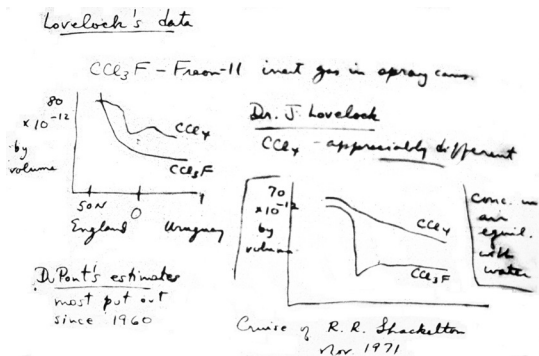 Lovelock's data
CCl3F - Freon-11 inert gas in spray cans.
80
x 10^-12
by
volume
CCl4
CCl3F
50N
0
England
Uruguay
Dr. J. Lovelock
CCl4 - appreciably different
70
x10^-12
by
volume
CCl4
CCl3F
conc. in
air
equil.
with
water
DuPont's estimates
most put out
since 1960
Cruise of R.R. Shackelton
Nov 1971